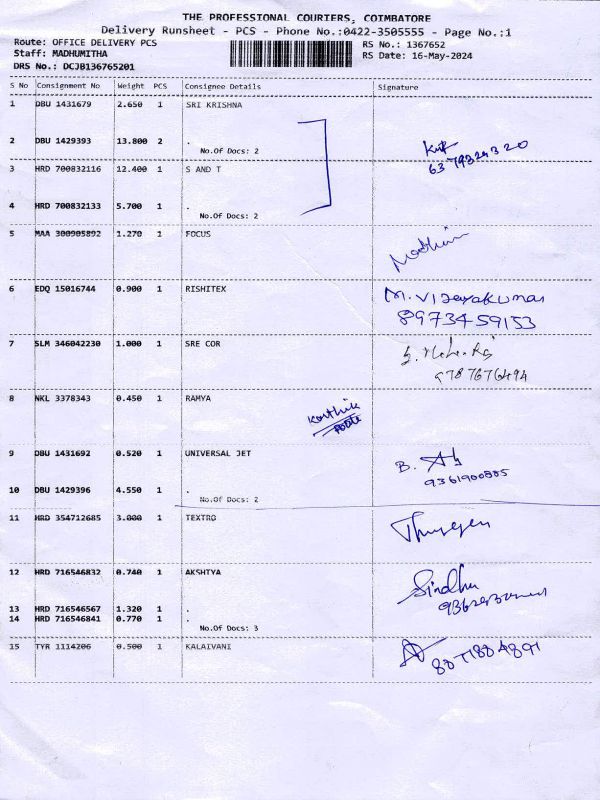 THE PROFESSIONAL COURIERS, COIMBATORE
Delivery Runsheet - PCS - Phone No.:0422-3505555 - Page No.:1
Route: OFFICE DELIVERY PCS
Staff: MADHUMITHA
DRS No.: DCJB136765201
RS No.: 1367652
RS Date: 16-May-2024
S No Consignment No Weight PCS Consignee Details Signature
1 DBU 1431679 2.650 1 SRI KRISHNA
2 DBU 1429393 13.800 2 .
No.Of Docs: 2
3 HRD 700832116 12.400 1 S AND T
4 HRD 700832133 5.700 1 .
No.Of Docs: 2
5 MAA 300905892 1.270 1 FOCUS
6 EDQ 15016744 0.900 1 RISHITEX M. Vijayakumar
8973459153
7 SLM 346042230 1.000 1 SRE COR
9787676494
8 NKL 3378343 0.450 1 RAMYA
Karthik
9 DBU 1431692 0.520 1 UNIVERSAL JET
10 DBU 1429396 4.550 1 .
No.Of Docs: 2
11 HRD 354712685 3.000 1 TEXTRO
12 HRD 716546832 0.740 1 AKSHTYA Sindhu
13 HRD 716546567 1.320 1 .
14 HRD 716546841 0.770 1 .
No.Of Docs: 3
15 TYR 1114206 0.500 1 KALAIVANI